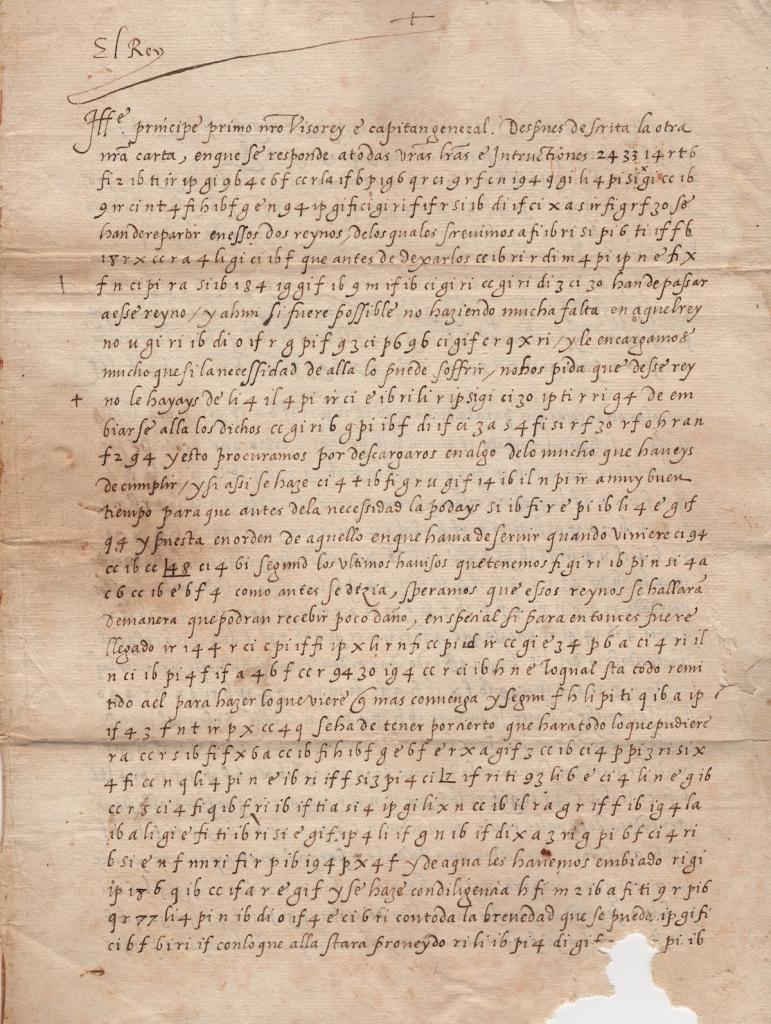 El Rey
Iffe. príncipe primo nro Visorey e capitan general. Despues descrita la otra
nrã carta, en que se responde a todas vras lras e Intructiones 24 33 14 r t 6
fi 2 ib ti ir ip gi 9 b 4 c b f cc r la if b p 19 6 q r ci 9 r f c n 19 4 q gi li 4 pi si gi cc ib
9 ir ci n t 4 fi h ib f g e n 9 4 ip gi fi ci gi ri f if r si ib di if ci x a s ir fi g r f 30 se
han de repartir en essos dos reynos, de los quales screvimos a fi ib ri si pi 6 ti if f b
18 r x cc r a 4 li gi ci ib f que antes de dexarlos cc ib ri r di m 4 pi ip n e fi x
f n ci pi ra si ib 18 4 19 gi f ib 9 m if ib ci gi ri cc gi ri di 3 ci 30 han de passar
a esse reyno / y ahun si fuere possible no haziendo mucha falta en aquel rey
no u gi ri ib di o if r g pi f 9 3 ci p 6 9 6 ci gi f c r q x ri / y le encargamos
mucho que si la necessidad de alla lo puede soffrir / no hos pida que desse rey
no le hayays de li 4 il 4 pi ir ci e ib ri li r ip si gi ci 30 ip ti r ri g 4 de em
biarse alla los dichos cc gi ri 6 g pi ib f di if ci 3 a s 4 fi si r f 30 r f o h r a n
f 2 9 4 y esto procuramos por descargaros en algo de lo mucho que haveys
de cumplir / y si assi se haze ci 4 t ib fi g r u gi f 14 ib il n pi ir a muy buen
tiempo para que antes de la necessidad la podays si ib fi r e pi ib li 4 e gi f
q 4 y puesta en orden de aquello en que havia de servir quando viniere ci 9 4
cc ib cc 48 ci 4 6i segund los ultimos havisos que tenemos fi gi ri ib pi n si 4 a
c 6 cc ib e b f 4 como antes se dezia, speramos que essos reynos se hallarã
de manera que podran recebir poco daño, en special si para entonces fuere
llegado ir i 4 4 r ci c pi if fi ip x li r n fi cc pi id ir cc gi e 3 4 p 6 a ci 4 ri il
n ci ib pi 4 f if a 4 6 f cc r 9 4 30 19 4 cc r ci ib h n e lo qual sta todo remi
tido a el para hazer lo que viere q mas convenga y segun f h li pi ti q ib a ip
if 4 3 f n t ir p x cc 4 q se ha de tener por cierto que hara todo lo que pudiere
ra cc r s ib fi f x b a cc ib fi h ib f g e b f e r x a gi f 3 cc ib ci 4 p pi 3 ri si x
4 fi cc n q li 4 pi n e ib ri if f si 3 pi 4 ci lz if ri ti 9 3 li 6 e ci 4 li n e g ib
cc r 3 ci 4 fi q ib f ri ib if ti a si 4 ip gi li x n cc ib il r a g r if f ib 19 4 la
ib a li gi e fi ti ib ri si e gi f. ip 4 li if g n ib if di x a 3 ri g pi 6 f ci 4 ri
b si e n f nn ri fi r p ib 19 4 p x 4 f y de aqua les havemos embiado ri gi
ip 18 6 q ib cc if a r e gi f y se haze con diligencia h fi m 2 ib a fi ti 9 r pi 6
q r 77 li 4 pi n ib di o if 4 e ci b ti con toda la brevedad que se pueda ip gi fi
ci b f b i ri if con lo que alla stara proveydo ri li ib pi 4 di gi f pi ib